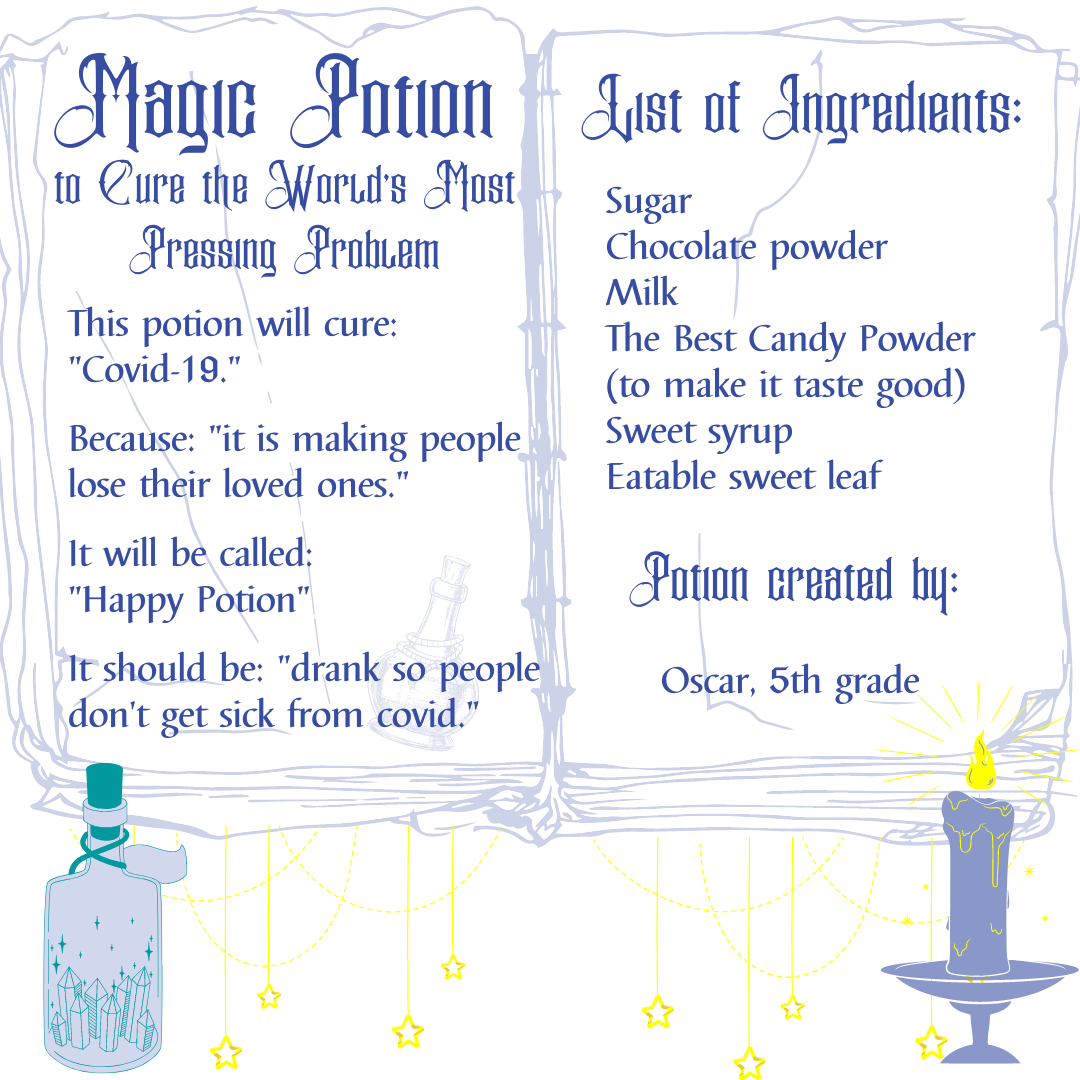 Magic Potion
to Cure the World's Most
Pressing Problem
This potion will cure:
"Covid-19."
Because: "it is making people
lose their loved ones."
It will be called:
"Happy Potion"
It should be: "drank so people
don't get sick from covid."
List of Ingredients:
Sugar
Chocolate powder
Milk
The Best Candy Powder
(to make it taste good)
Sweet syrup
Eatable sweet leaf
Potion created by:
Oscar, 5th grade